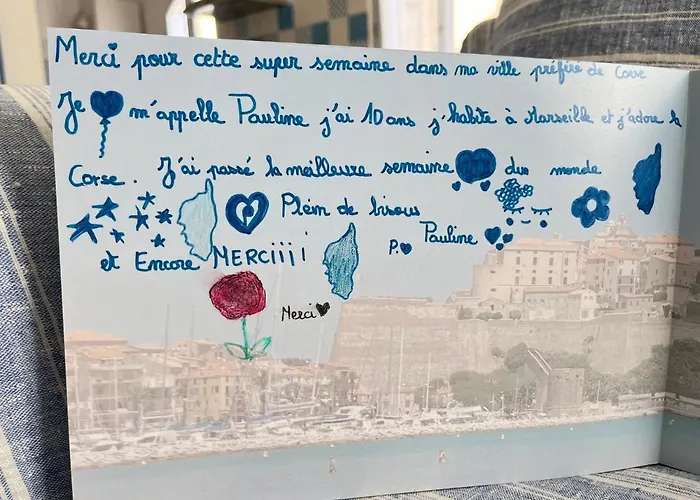 Merci pour cette super semaine dans ma ville préfére de Corse
Je m'appelle Pauline j'ai 10 ans j'habite à Marseille et j'adore la
Corse. J'ai passé la meilleure semaine du monde
Plein de bisous
P. Pauline
et Encore MERCiiii
Merci